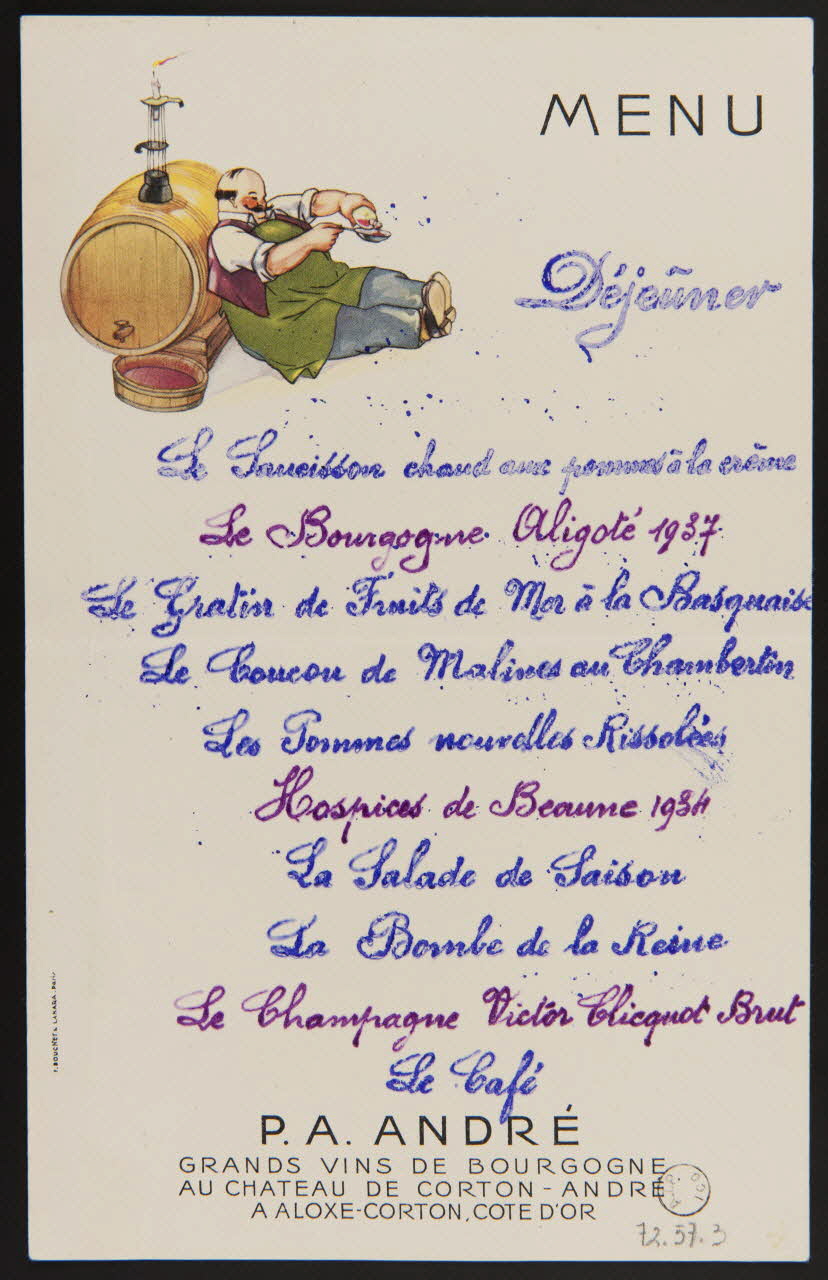 MENU
Déjeûner
Le Saucisson chaud aux pommes à la crème
Le Bourgogne Aligoté 1937
Le Gratin de Fruits de Mer à la Basquaise
Le Coucou de Malines au Chambertin
Les Pommes nouvelles Rissolées
Hospices de Beaune 1934
La Salade de Saison
La Bombe de la Reine
Le Champagne Victor Clicquot Brut
Le Café
P. A. ANDRÉ
GRANDS VINS DE BOURGOGNE
AU CHATEAU DE CORTON-ANDRÉ
A ALOXE-CORTON, COTE D'OR
72.57.3